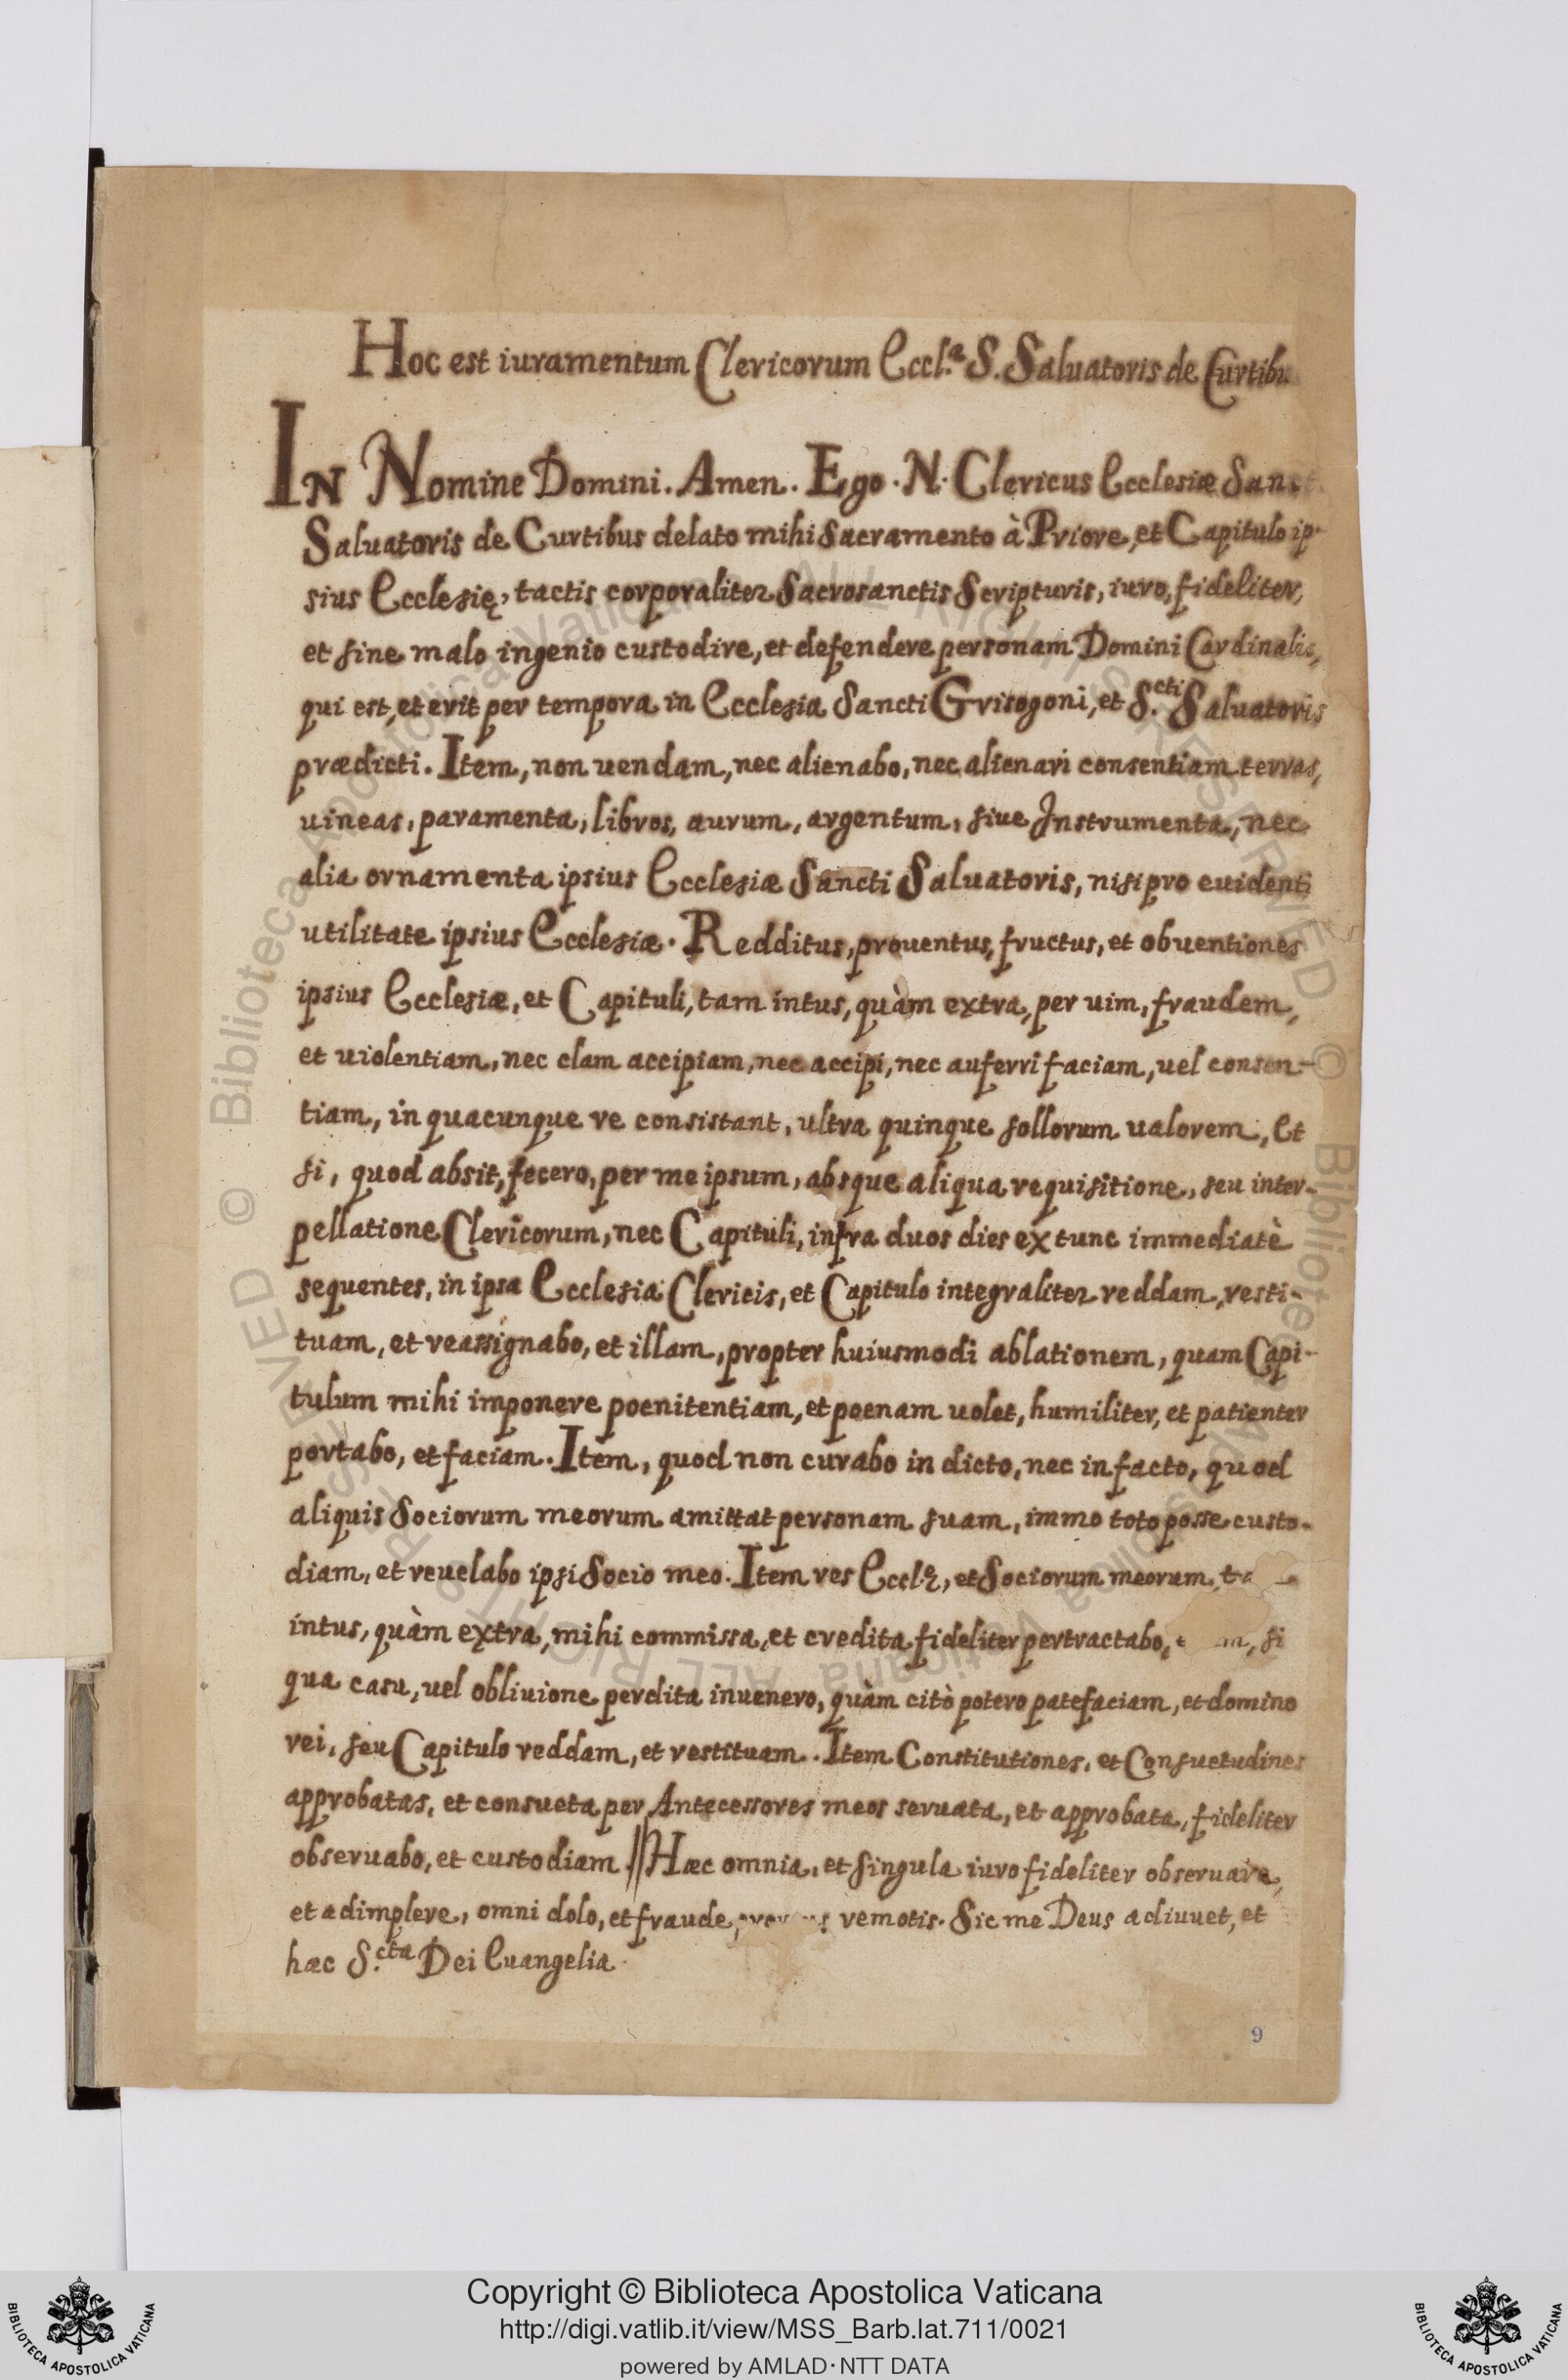 Hoc est iuramentum Clericorum Eccl.ª S. Saluatoris de Curtibu
IN Nomine Domini. Amen. Ego. N. Clericus Ecclesiæ Sanct
Saluatoris de Curtibus delato mihi Sacramento à Priore, et Capitulo ip-
sius Ecclesię, tactis corporaliter Sacrosanctis Scripturis, iuro, fideliter,
et sine malo ingenio custodire, et defendere personam Domini Cardinalis,
qui est, et erit per tempora in Ecclesia Sancti Grisogoni, et S.cti Saluatoris
prædicti. Item, non uendam, nec alienabo, nec alienari consentiam terras,
uineas, paramenta, libros, aurum, argentum, siue Instrumenta, nec
alia ornamenta ipsius Ecclesiæ Sancti Saluatoris, nisi pro euidenti
utilitate ipsius Ecclesiæ. Redditus, prouentus, fructus, et obuentiones
ipsius Ecclesiæ, et Capituli, tam intus, quàm extra, per uim, fraudem,
et uiolentiam, nec clam accipiam, nec accipi, nec auferri faciam, uel consen-
tiam, in quacunque re consistant, ultra quinque sollorum ualorem, et
si, quod absit, fecero, per me ipsum, absque aliqua requisitione, seu inter-
pellatione Clericorum, nec Capituli, infra duos dies ex tunc immediatè
sequentes, in ipsa Ecclesia Clericis, et Capitulo integraliter reddam, resti-
tuam, et reassignabo, et illam, propter huiusmodi ablationem, quam Capi-
tulum mihi imponere poenitentiam, et poenam uolet, humiliter, et patienter
portabo, et faciam. Item, quod non curabo in dicto, nec in facto, quod
aliquis Sociorum meorum amittat personam suam, immo toto posse custo-
diam, et reuelabo ipsi Socio meo. Item res Eccl.ę, et Sociorum meorum
intus, quàm extra, mihi commissa, et credita fideliter pertractabo, si
qua casu, uel obliuione perdita inuenero, quàm citò potero patefaciam, et domino
rei, seu Capitulo reddam, et restituam. Item Constitutiones, et Consuetudines
approbatas, et consueta per Antecessores meos seruata, et approbata, fideliter
obseruabo, et custodiam. || Hæc omnia, et singula iuro fideliter obseruare,
et adimplere, omni dolo, et fraude, remotis. Sic me Deus adiuuet, et
hæc S.cta Dei Euangelia.
9
© Biblioteca Apostolica Vaticana ALL RIGHTS RESERVED © Biblioteca Apostolica Vaticana ALL RIGHTS RESERVED
BIBLIOTECA APOSTOLICA VATICANA
Copyright © Biblioteca Apostolica Vaticana
http://digi.vatlib.it/view/MSS_Barb.lat.711/0021
powered by AMLAD·NTT DATA
BIBLIOTECA APOSTOLICA VATICANA